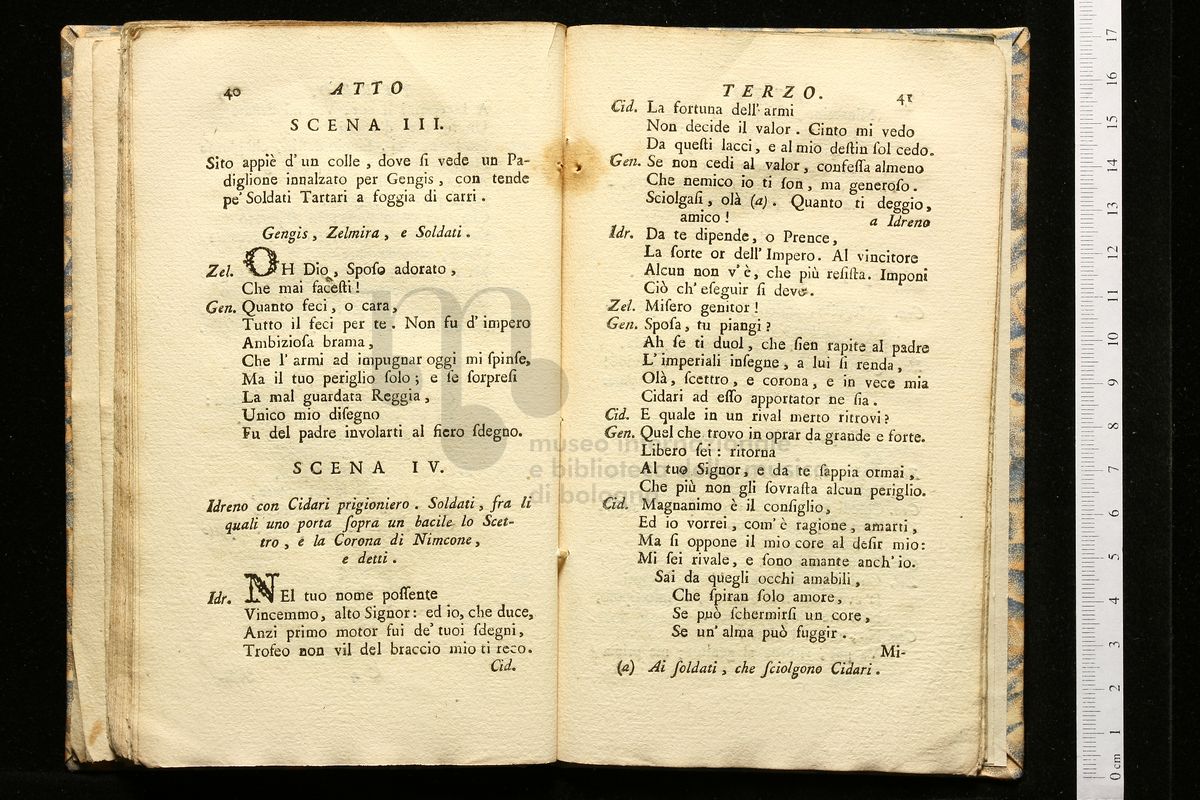 40 ATTO
SCENA III.
Sito appiè d' un colle, dove ſi vede un Pa-
diglione innalzato per Gengis, con tende
pe' Soldati Tartari a foggia di carri.
Gengis, Zelmira, e Soldati.
Zel. OH Dio, Spoſo adorato,
Che mai faceſti!
Gen. Quanto feci, o cara,
Tutto il feci per te. Non fu d' impero
Ambizioſa brama,
Che l' armi ad impugnar oggi mi ſpinſe,
Ma il tuo periglio ſolo; e ſe ſorpreſi
La mal guardata Reggia,
Unico mio diſegno
Fu del padre involarti al fiero ſdegno.
SCENA IV.
Idreno con Cidari prigioniero. Soldati, fra li
quali uno porta ſopra un bacile lo Scet-
tro, e la Corona di Nimcone,
e detti.
Idr. NEl tuo nome poſſente
Vincemmo, alto Signor: ed io, che duce,
Anzi primo motor fui de' tuoi ſdegni,
Trofeo non vil del braccio mio ti reco.
Cid.
TERZO. 41
Cid. La fortuna dell' armi
Non decide il valor. Cinto mi vedo
Da queſti lacci, e al mio deſtin ſol cedo.
Gen. Se non cedi al valor, confeſſa almeno
Che nemico io ti ſon, ma generoſo.
Sciolgaſi, olà (a). Quanto ti deggio,
amico! a Idreno
Idr. Da te dipende, o Prence,
La ſorte or dell' Impero. Al vincitore
Alcun non v' è, che più reſiſta. Imponi
Ciò ch' eſeguir ſi deve.
Zel. Miſero genitor!
Gen. Spoſa, tu piangi?
Ah ſe ti duol, che ſien rapite al padre
L' imperiali inſegne, a lui ſi renda,
Olà, ſcettro, e corona, e in vece mia
Cidari ad eſſo apportator ne ſia.
Cid. E quale in un rival merto ritrovi?
Gen. Quel che trovo in oprar da grande e forte.
Libero ſei: ritorna
Al tuo Signor, e da te ſappia ormai,
Che più non gli ſovraſta alcun periglio.
Cid. Magnanimo è il conſiglio,
Ed io vorrei, com' è ragione, amarti,
Ma ſi oppone il mio core al deſir mio:
Mi ſei rivale, e ſono amante anch' io.
Sai da quegli occhi amabili,
Che ſpiran ſolo amore,
Se può ſchermirſi un core,
Se un' alma può fuggir.
Mi-
(a) Ai ſoldati, che ſciolgono Cidari.
museo internazionale
e biblioteca della musica
di bologna
17
16
15
14
13
12
11
10
9
8
7
6
5
4
3
2
1
0 cm